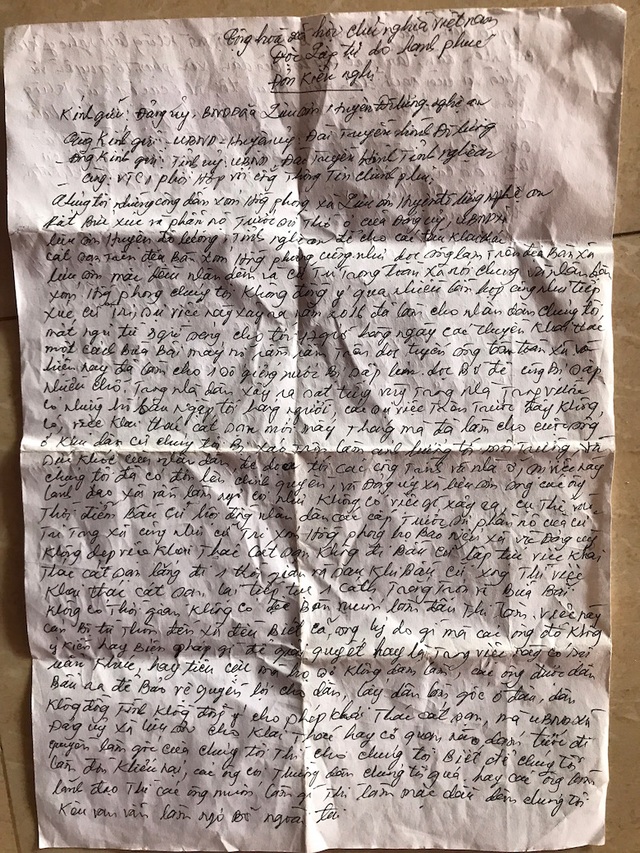 Cộng hoà xã hội chủ nghĩa việt nam
Độc Lập tự do hạnh phúc
Đơn kiến nghị
Kính gửi: Đảng uỷ, UBND xã Lưu sơn Huyện Đô lương, nghệ an
Đồng Kính gửi: UBND - Huyện uỷ, Đài Truyền hình Đô lương
Đồng Kính gửi: Tỉnh uỷ UBND Đài Truyền hình Tỉnh nghệ an
cùng VTC1 phối Hợp với cổng Thông Tin chính phủ
chúng tôi những công dân xóm Hồng phong xã Lưu sơn Huyện đô lương nghệ an
Rất Bức xúc và phẫn nộ Trước sự Thờ ơ của Đảng uỷ, UBND xã
lưu sơn Huyện đô lương, Tỉnh nghệ an để cho các tàu Khai thác
cát sạn Trên địa Bàn xóm Hồng phong cũng như dọc sông lam Trên địa Bàn xã
lưu sơn mặc dầu nhân dân và cử Tri Trong toàn xã nói chung và nhân dân
xóm Hồng phong chúng tôi Không đồng ý qua nhiều lần họp cũng như tiếp
xúc cử Tri, Sự việc này xảy ra năm 2016 đã làm cho nhân dân chúng tôi,
mất ngủ từ giờ sáng cho tới giờ hàng ngày các thuyền Khai thác
một cách Bừa Bãi dọc tuyến sông toàn xã và
hiện nay đã làm cho số giếng nước Bị sập dọc Bờ đê cũng Bị sập
nhiều chỗ. Trong nhà dân xảy ra sạt Trong nhà Trong vườn
có những hố sâu nguy tới hàng người, các sự việc Trên Trước đây Không
có, việc Khai thác cát sạn mới mấy Tháng mà đã làm cho cuộc sống
ở Khu dân cư chúng tôi Bị xáo Trộn làm ảnh hưởng tới môi Trường và
Sức Khoẻ của nhân dân đe doạ tới các công Trình và nhà ở, sự việc này
chúng tôi đã có đơn lên chính quyền, và Đảng uỷ xã lưu sơn song các ông
lãnh đạo xã vẫn làm ngơ coi như Không có việc gì xảy ra, cụ Thể vào
Thời điểm Bầu cử hội đồng nhân dân các cấp Trước sự phẫn nộ của cử
Tri Trong xã cũng như cử Tri xóm Hồng phong họ Bảo nếu xã và Đảng uỷ
Không dẹp việc Khai Thác cát sạn Không đi Bầu cử lập tức việc Khai
Thác cát sạn lắng đi 1 thời gian và sau Khi Bầu cử xong Thì việc
Khai thác cát sạn lại tiếp tục 1 cách Trắng Trợn và Bừa Bãi
Không có Thời gian Không có địa Bàn muốn làm đâu Thì làm, việc này
cán Bộ từ thôn đến xã đều Biết cả, lý do gì mà các ông đó Không
ý kiến hay Biện pháp gì để giải quyết hay là Trong việc này có sự
hay tiêu cực mà họ Không dám làm, các ông được dân
Bầu ra để Bảo vệ quyền lợi cho dân, lấy dân làm gốc ở đâu, dân
Không đồng Tình Không đồng ý cho phép Khai Thác cát sạn, mà UBND xã
Đảng uỷ xã lưu sơn cho Khai Thác hay cơ quan nào dám tước đi
quyền làm gốc của chúng tôi Thì cho chúng tôi Biết để chúng tôi
làm đơn Khiếu nại, các ông coi Thường dân chúng tôi quá hay các ông làm
lãnh đạo Thì các ông muốn làm gì Thì làm mặc dầu dân chúng tôi
Kêu van vẫn làm ngơ Bỏ ngoài tai